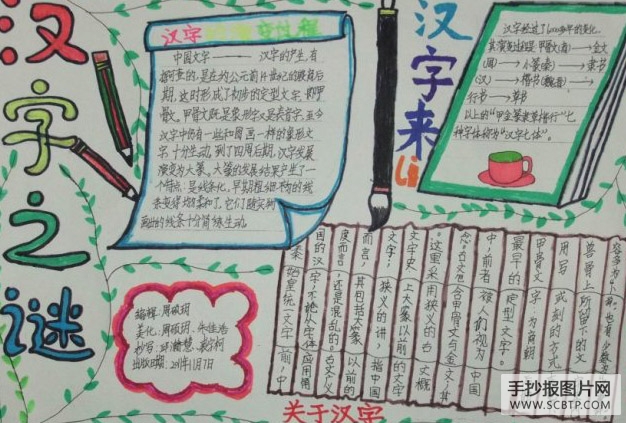 汉字之谜
汉字 变过程
中国文字———— 汉字的产生,有
据可查的,是在约公元前14世纪的殷商后
期,这时形成了初步的定型文字,即甲
骨文。甲骨文既是象形字又是表音字,至今
汉字中仍有一些和图画一样的象形文
字,十分生动。到了西周后期,汉字发展
演变为大篆。大篆的发展结果产生了一
个特点:是线条化,早期粗细不匀的线
条变得均匀柔和了,它们随实物
画出的线条十分简练生动。
汉字来Li
汉字经过了6000多年的变化,
其演变过程是:甲骨文(商)→金文
(周)→小篆(秦)→隶书
(汉)→楷书(魏晋)→
行书→草书
以上的“甲金篆隶草楷行”七
种字体称为“汉字七体”。
兽骨上所的文
用写或刻的方式
甲骨文字为商朝
最早的定型文字。
中,前者被人们视为中国
含甲骨文与金文,其
。这里采用狭义的古文概
文字史上大篆以前的文字
文字;狭义的讲,指中国
而言,其包括大篆以前的
度而言,还是混乱的。古文广义
国的汉字,不把从字体应用角
秦始皇统一文字前,中
编程:周硕明
美化:周硕明、朱佳浩
出版日期:2011年11月7日
关于汉字
手抄报图片网
WWW.SCBTP.COM